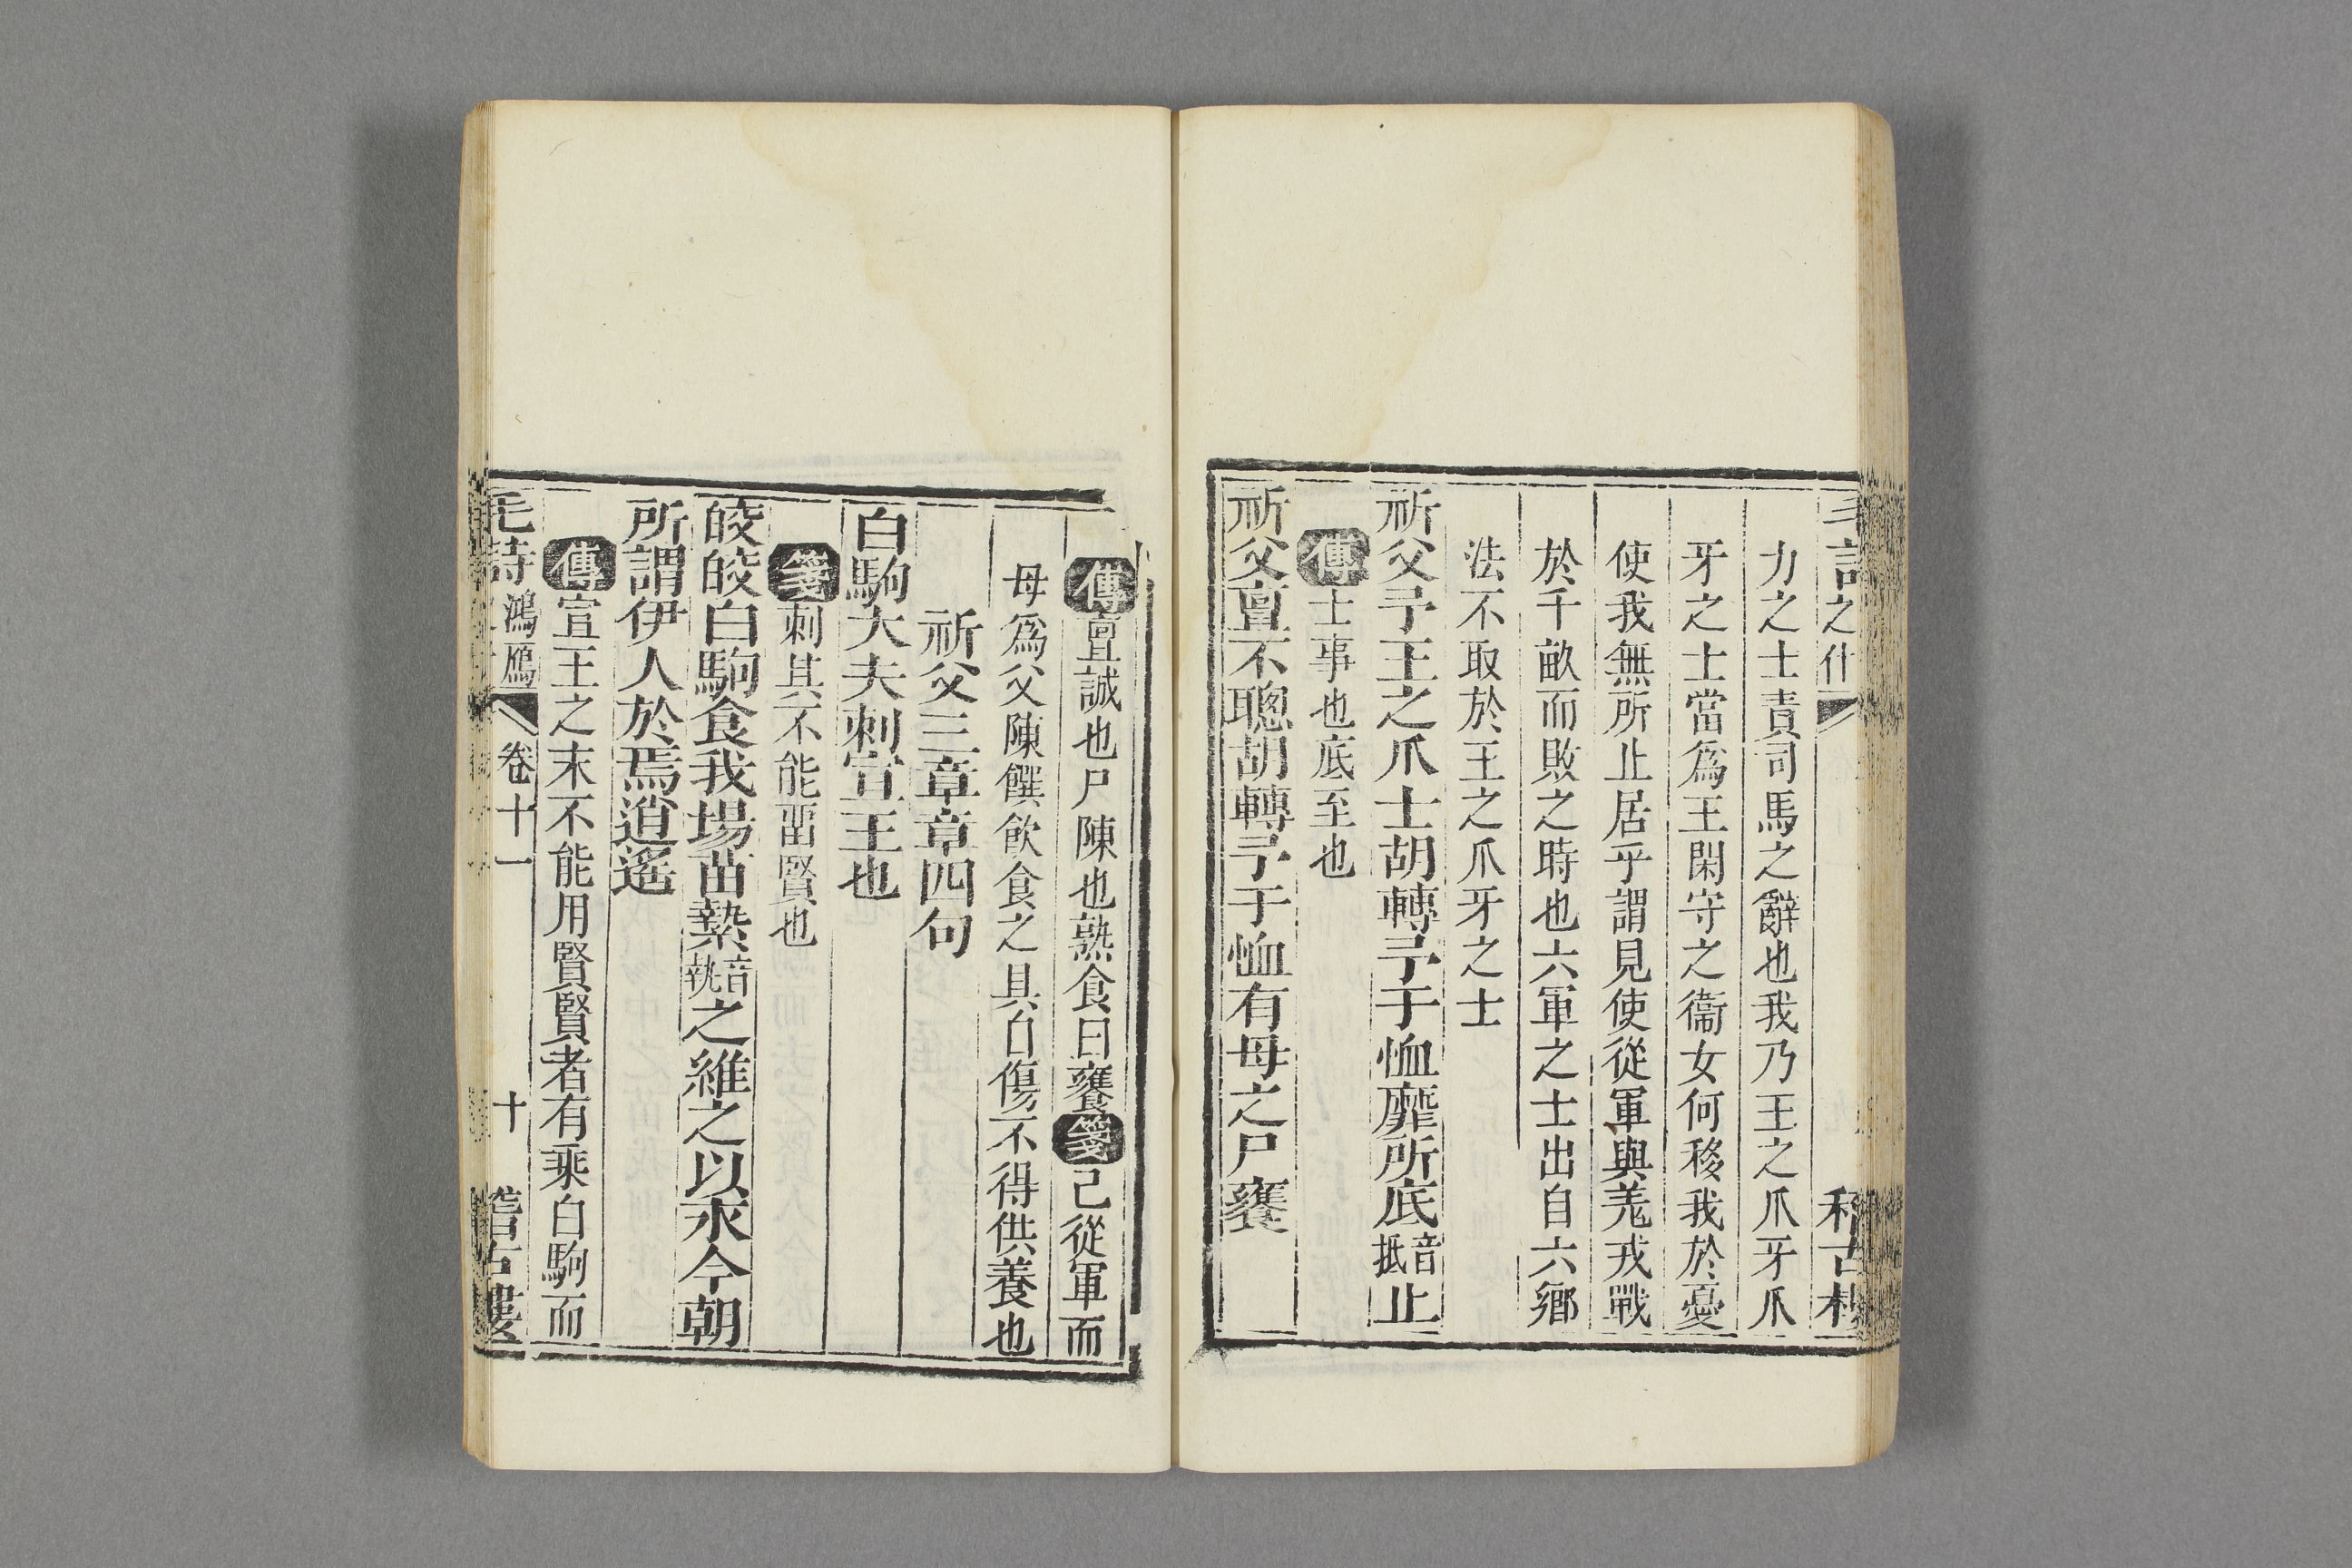 之什
力之士責司馬之辭也我乃王之爪牙爪
牙之士當爲王閑守之衞女何移我於憂
使我無所止居乎謂見使從軍與羗戎戰
於千畝而敗之時也六軍之士出自六鄉
法不取於王之爪牙之士
祈父予王之爪士胡轉予于恤靡所底音抵止
傳士事也底至也
祈父亶不聰胡轉予于恤有母之尸饔
傳亶誠也尸陳也熟食曰饔箋己從軍而
母爲父陳饌飮食之具自傷不得供養也
祈父三章章四句
白駒大夫刺宣王也
箋刺其不能畱賢也
皎皎白駒食我場苗縶音執之維之以永今朝
所謂伊人於焉逍遙
傳宣王之末不能用賢賢者有乘白駒而
毛詩 鴻鴈 卷十一 十 稽古樓